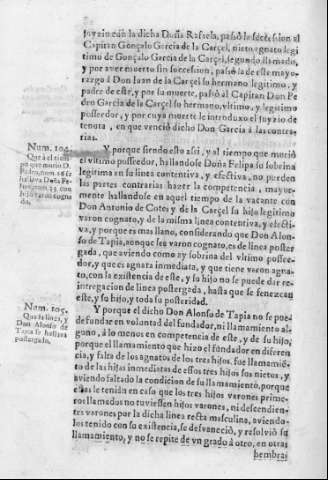 juyzio con la dicha Doña Rafaela, passò la successsion al
Capitan Gonçalo Garcia de la Carçel, nieto agnato legi
timo de Gonçalo Garcia de la Carçel, segundo llamado,
y por aver muerto sin succession, passò la de este mayo-
razgo à Don Iuan de la Carçel su hermano legitimo, y
padre de este, y por su muerte, passò al Capitan Don Pe
dro Garcia de la Carçel su hermano, vltimo, y legitimo
posseedor, y por cuya muerte le introduxo el juyzio de
tenuta, en que venciò dicho Don Garcia à las contra-
rias.
Num. 104.
Que à el tiem
po que murio D.
Pedro,
se ha
llava Doña Fe
lipa con
hijo
cogna
do.
Y porque siendo esto assi, y al tiempo que muriò
el vltimo posseedor, hallandose Doña Felipa su sobrina
legitima en su linea contentiva, y efectiva, no pueden
las partes contrarias hazer la competencia, mayor-
mente hallandose en aquel tiempo de la vacante con
Don Antonio de Cotes y de la Carçel su hijo legitimo
varon cognato, y de la misma linea contentiva, y efecti-
va, y porque es mas llano, considerando que Don Alon-
so de Tapia, aunque sea varon cognato, es de linea poster
gada, que aviendo como ay sobrina del vltimo possee-
dor, y que es agnata inmediata, y que tiene varon agna-
to, con la existencia de este, y su hijo no se puede dar re-
integracion de linea postergada, hasta que se fenezcan
este, y su hijo, y toda su posteridad.
Num. 105.
Que la linea, y
Don Alonso de
Tapia se hallava
postergado.
Y porque el dicho Don Alonso de Tapia no se pue-
de fundar en voluntad del fundador, ni llamamiento al-
guno, à lo menos en competencia de este, y de su hijo,
porque el llamamiento que hizo el fundador en diferen
cia, y falta de los agnatos de los tres hijos, fue llamamie-
to de las hijas inmediatas de essos tres hijos sus nietas, y
aviendo faltado la condicion de su llamamiento, porque
ellas le tenian en caso que los tres hijos varones prime-
ros llamados no tuviessen hijos varones, ni descendien-
tes varones por la dicha linea recta masculina, aviendo-
los tenido con su existencia, se desvaneciò, y resolviò su
llamamiento, y no se repite de vn grado à otro, en otras
hembras